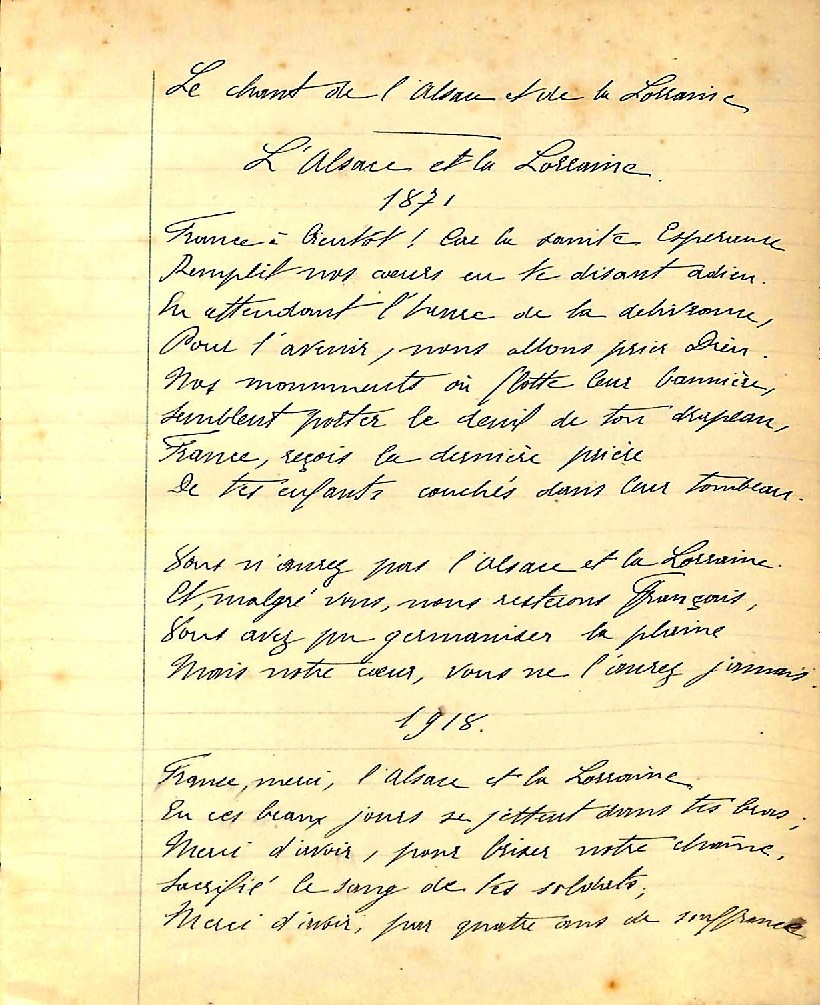 Le chant de l'Alsace et de la Lorraine
L'Alsace et la Lorraine.
1871
France à bientôt ! Car la sainte Esperance
Remplit nos cœurs en te disant adieu.
En attendant l'heure de la delivrance,
Pour l'avenir, nous allons prier Dieu.
Nos monuments où flotte leur bannière,
semblent porter le deuil de ton drapeau,
France, reçois la dernière prière
De tes enfants couchés dans leur tombeau.
Vous n'aurez pas l'Alsace et la Lorraine.
Et, malgré vous, nous resterons Français,
Vous avez pu germaniser la plaine
Mais notre cœur, vous ne l'aurez jamais.
1918.
France, merci, l'Alsace et la Lorraine
En ces beaux jours se jettent dans tes bras ;
Merci d'avoir, pour briser notre chaîne,
Sacrifié le sang de tes soldats ;
Merci d'avoir, par quatre ans de souffrance